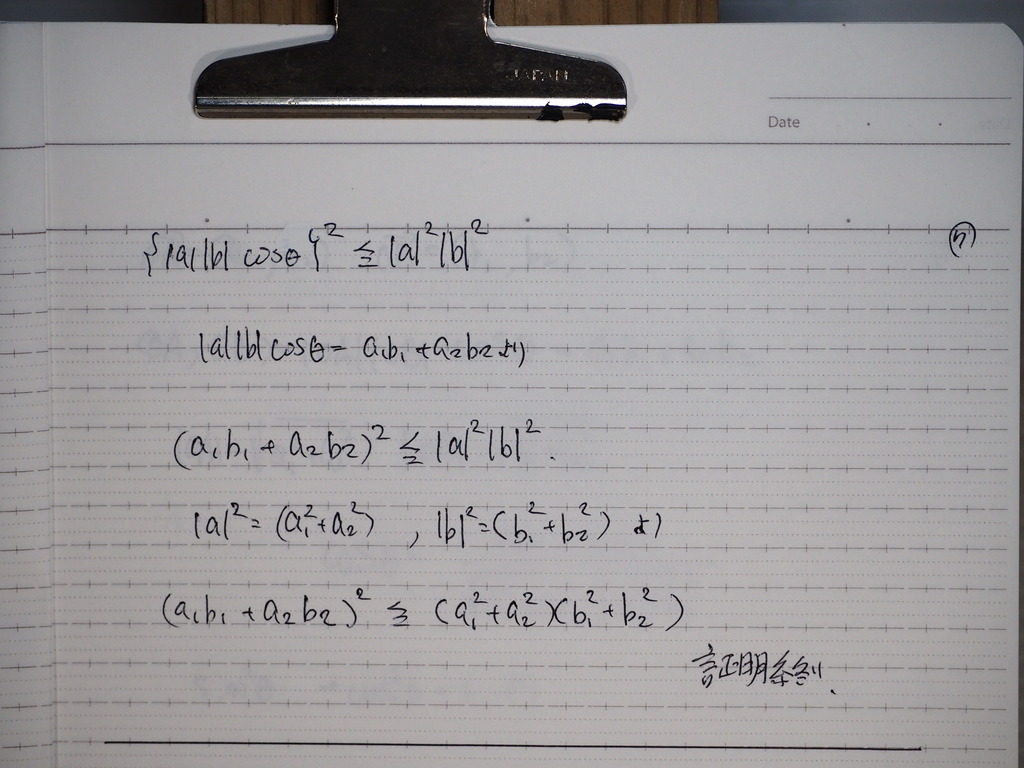 JAPAN
Date
{|a||b| cosθ}² ≦ |a|²|b|²
⑤
|a||b| cosθ = a₁b₁ + a₂b₂ より
(a₁b₁ + a₂b₂)² ≦ |a|²|b|².
|a|² = (a₁² + a₂²) , |b|² = (b₁² + b₂²) より
(a₁b₁ + a₂b₂)² ≦ (a₁² + a₂²)(b₁² + b₂²)
証明終り.